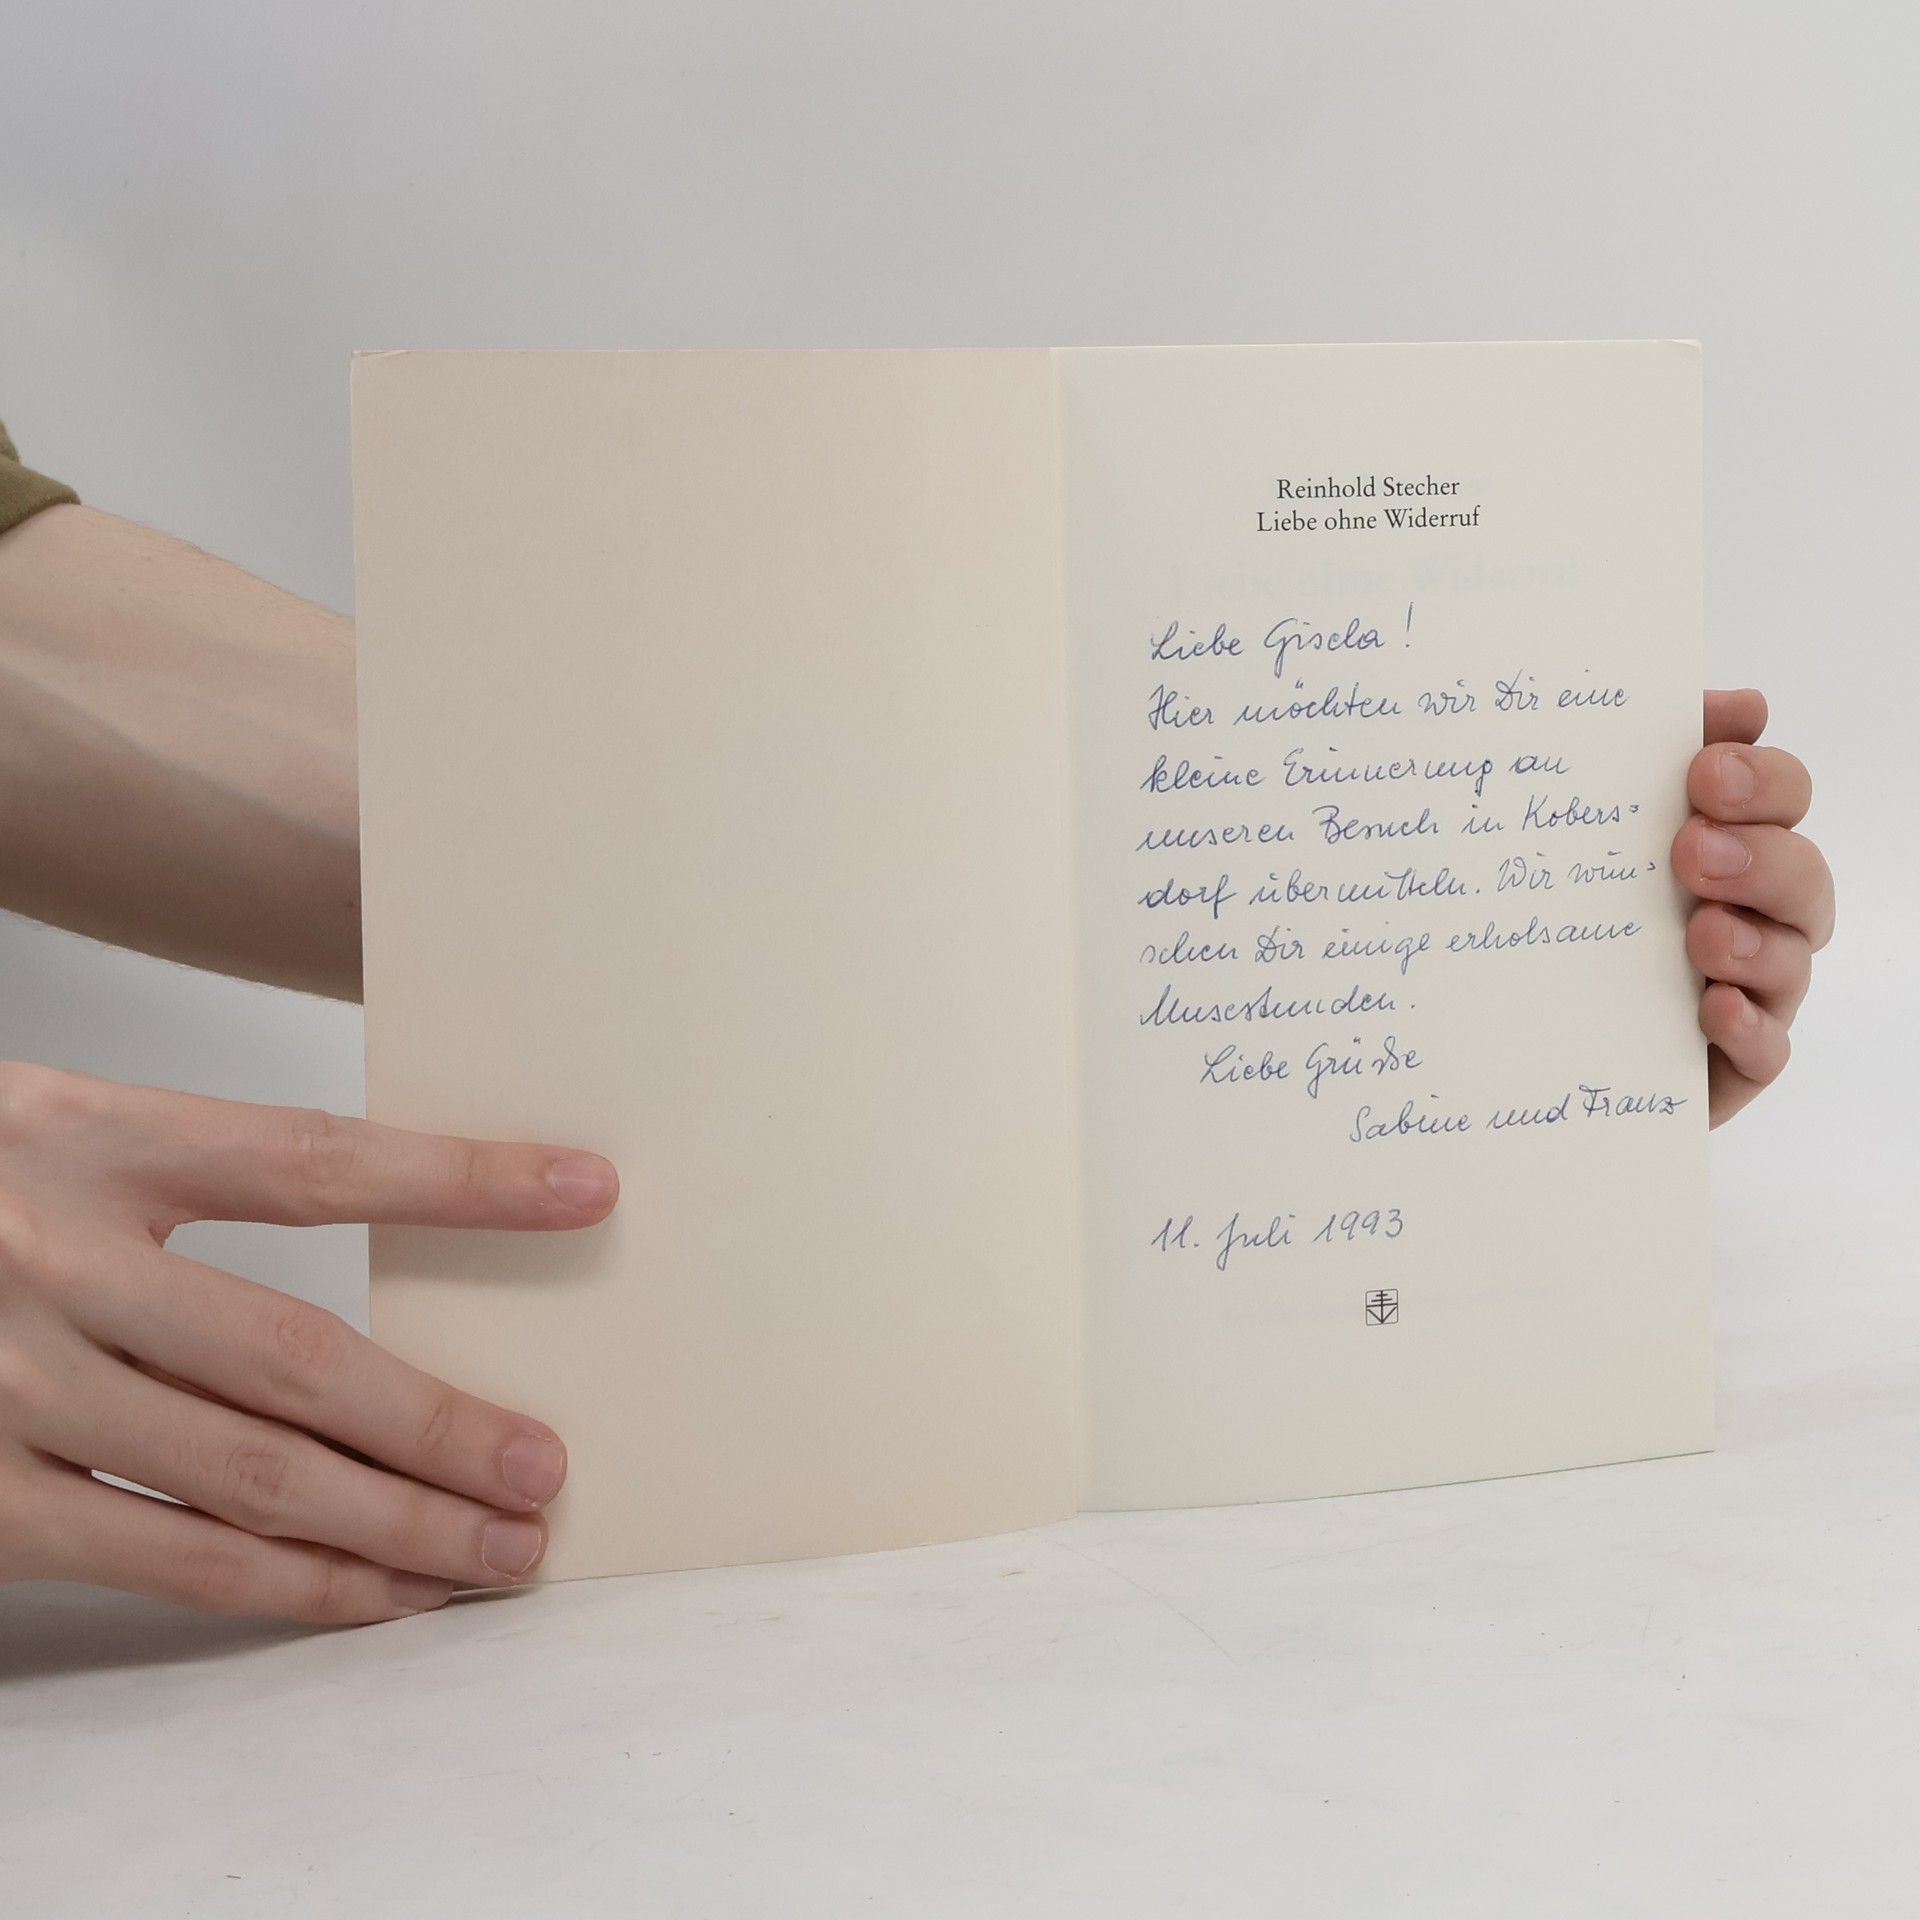 Reinhold Stecher
Liebe ohne Widerruf
Liebe Gisela !
Hier möchten wir Dir eine
kleine Erinnerung an
unseren Besuch in Kobers=
dorf übermitteln. Wir wün=
schen Dir einige erholsame
Musestunden.
Liebe Grüße
Sabine und Franz
11. Juli 1993